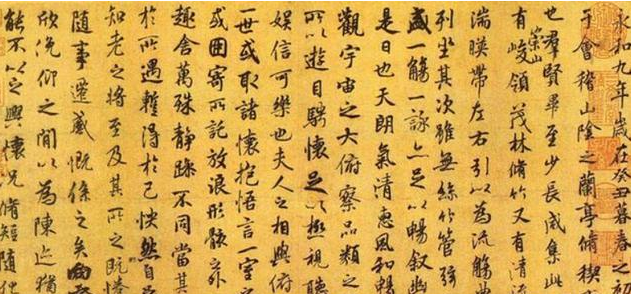 永和九年歲在癸丑暮春之初
于會稽山陰之蘭亭脩稧
也羣賢畢至少長咸集此
有崇山峻領茂林脩竹又有清流
湍暎帶左右引以為流觴曲
列坐其次雖無絲竹管弦
盛一觴一詠亦足以暢叙幽
是日也天朗氣清惠風和暢
觀宇宙之大俯察品類之
所以遊目騁懷足以極視聽
娛信可樂也夫人之相與俯
一世或取諸懷抱悟言一室之
或因寄所託放浪形骸之外
趣舍萬殊靜躁不同當其
於所遇蹔得於己快然自
知老之將至及其所之既惓
隨事遷感慨係之矣向
欣俛仰之閒以為陳迹猶
能不以之興懷況脩短隨化